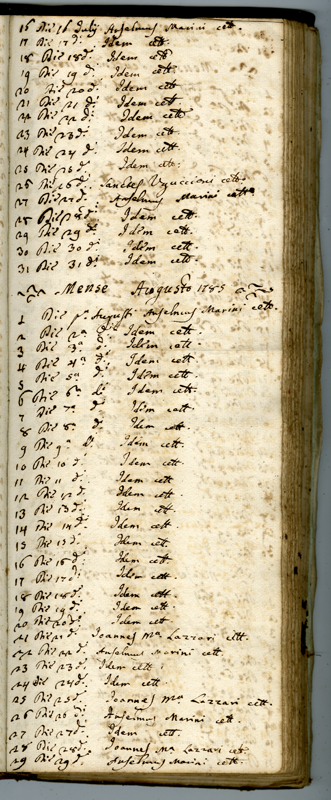 16 Die 16 Julij Anselmus Marini cett.
17 Die 17 d: Idem cett.
18 Die 18 d: Idem cett
19 Die 19 d: Idem cett.
20 Die 20 d: Idem cett.
21 Die 21 d: Idem cett:
22 Die 22 d: Idem cett
23 Die 23 d: Idem cett.
24 Die 24 d: Idem cett.
25 Die 25 d: Idem cett:
26 Die 26 d: Uguccioni cett.
27 Die 27 d: Anselmus Marini cett.
28 Die 28 d: Idem cett.
29 Die 29 d: Idem cett.
30 Die 30 d: Idem cett.
31 Die 31 d: Idem cett.
Mense Augusto 1785
1 Die p.a Augusti Anselmus Marini cett.
2 Die 2a d: Idem cett.
3 Die 3a d: Idem cett.
4 Die 4a d: Idem cett.
5 Die 5a d: Idem cett.
6 Die 6a d: Idem cett.
7 Die 7a d: Idem cett.
8 Die 8a d: Idem cett.
9 Die 9a d: Idem cett.
10 Die 10 d: Idem cett.
11 Die 11 d: Idem cett.
12 Die 12 d: Idem cett.
13 Die 13 d: Idem cett.
14 Die 14 d: Idem cett.
15 Die 15 d: Idem cett.
16 Die 16 d: Idem cett.
17 Die 17 d: Idem cett.
18 Die 18 d: Idem cett.
19 Die 19 d: Idem cett.
20 Die 20 d: Idem cett
21 Die 21 d: Joannes Ma Lazzari cett.
22 Die 22 d: Anselmus Marini cett.
23 Die 23 d: Idem cett:
24 Die 24 d: Idem cett.
25 Die 25 d: Joannes Ma Lazzari cett.
26 Die 26 d: Anselmus Marini cett.
27 Die 27 d: Idem cett.
28 Die 28 d: Joannes Ma Lazzari cett.
29 Die 29 d: Anselmus Marini cett.